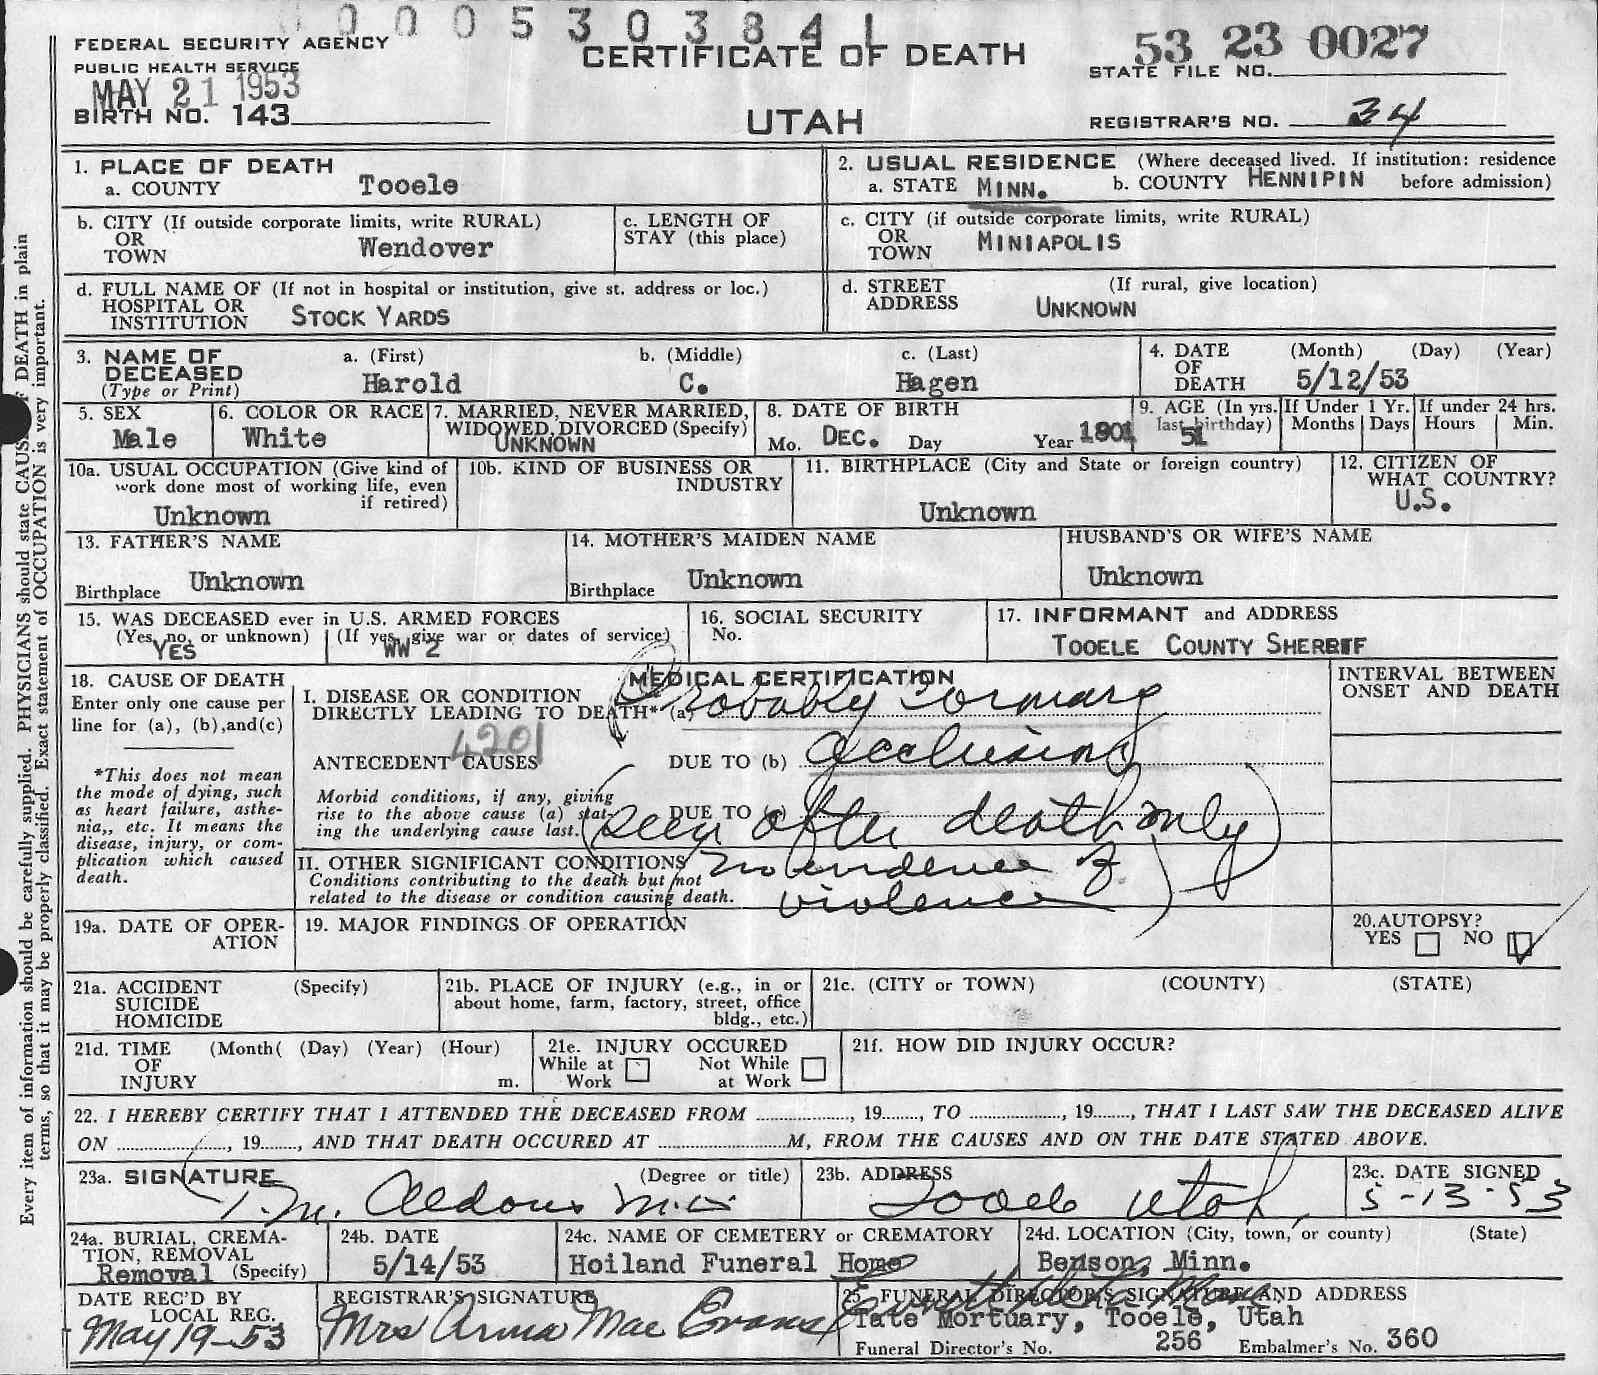 0005303841
FEDERAL SECURITY AGENCY
PUBLIC HEALTH SERVICE
MAY 21 1953
BIRTH NO. 143
CERTIFICATE OF DEATH
UTAH
53 23 0027
STATE FILE NO.
REGISTRAR'S NO. 34
Every item of information should be carefully supplied. PHYSICIANS should state CAUSE OF DEATH in plain
terms, so that it may be properly classified. Exact statement of OCCUPATION is very important.
1. PLACE OF DEATH
a. COUNTY Tooele
2. USUAL RESIDENCE (Where deceased lived. If institution: residence
a. STATE MINN. b. COUNTY HENNIPIN before admission)
b. CITY (If outside corporate limits, write RURAL)
OR
TOWN Wendover
c. LENGTH OF
STAY (this place)
c. CITY (if outside corporate limits, write RURAL)
OR
TOWN MINIAPOLIS
d. FULL NAME OF (If not in hospital or institution, give st. address or loc.)
HOSPITAL OR
INSTITUTION STOCK YARDS
d. STREET (If rural, give location)
ADDRESS UNKNOWN
3. NAME OF
DECEASED
(Type or Print)
a. (First)
Harold
b. (Middle)
C.
c. (Last)
Hagen
4. DATE (Month) (Day) (Year)
OF
DEATH 5/12/53
5. SEX
Male
6. COLOR OR RACE
White
7. MARRIED, NEVER MARRIED,
WIDOWED, DIVORCED (Specify)
UNKNOWN
8. DATE OF BIRTH
Mo. DEC. Day Year 1901
9. AGE (In yrs.
last birthday)
51
If Under 1 Yr.
Months Days
If under 24 hrs.
Hours Min.
10a. USUAL OCCUPATION (Give kind of
work done most of working life, even
if retired)
Unknown
10b. KIND OF BUSINESS OR
INDUSTRY
11. BIRTHPLACE (City and State or foreign country)
Unknown
12. CITIZEN OF
WHAT COUNTRY?
U.S.
13. FATHER'S NAME
Birthplace Unknown
14. MOTHER'S MAIDEN NAME
Birthplace Unknown
HUSBAND'S OR WIFE'S NAME
Unknown
15. WAS DECEASED ever in U.S. ARMED FORCES
(Yes, no, or unknown) (If yes, give war or dates of service)
YES WW 2
16. SOCIAL SECURITY
No.
17. INFORMANT and ADDRESS
TOOELE COUNTY SHERIFF
18. CAUSE OF DEATH
Enter only one cause per
line for (a), (b),and(c)
*This does not mean
the mode of dying, such
as heart failure, asthe-
nia,, etc. It means the
disease, injury, or com-
plication which caused
death.
MEDICAL CERTIFICATION
I. DISEASE OR CONDITION
DIRECTLY LEADING TO DEATH* (a) Probably Cornary
4201
ANTECEDENT CAUSES DUE TO (b) Occlusion
Morbid conditions, if any, giving
rise to the above cause (a) stat-
ing the underlying cause last.
DUE TO (c)
(Seen after death only)
II. OTHER SIGNIFICANT CONDITIONS
Conditions contributing to the death but not
related to the disease or condition causing death.
(No evidence of
violence)
INTERVAL BETWEEN
ONSET AND DEATH
19a. DATE OF OPER-
ATION
19. MAJOR FINDINGS OF OPERATION
20. AUTOPSY?
YES NO
21a. ACCIDENT (Specify)
SUICIDE
HOMICIDE
21b. PLACE OF INJURY (e.g., in or
about home, farm, factory, street, office
bldg., etc.)
21c. (CITY or TOWN) (COUNTY) (STATE)
21d. TIME (Month( (Day) (Year) (Hour)
OF
INJURY m.
21e. INJURY OCCURED
While at Not While
Work at Work
21f. HOW DID INJURY OCCUR?
22. I HEREBY CERTIFY THAT I ATTENDED THE DECEASED FROM ..............., 19......., TO ..............., 19......., THAT I LAST SAW THE DECEASED ALIVE
ON ..............., 19......., AND THAT DEATH OCCURED AT ...............M, FROM THE CAUSES AND ON THE DATE STATED ABOVE.
23a. SIGNATURE (Degree or title)
T.M. Aldous M.D.
23b. ADDRESS
Tooele Utah,
23c. DATE SIGNED
5-13-53
24a. BURIAL, CREMA-
TION, REMOVAL
Removal (Specify)
24b. DATE
5/14/53
24c. NAME OF CEMETERY or CREMATORY
Hoiland Funeral Home
24d. LOCATION (City, town, or county) (State)
Benson, Minn.
DATE REC'D BY
LOCAL REG.
May 19-53
REGISTRAR'S SIGNATURE
Mrs Anna Mae Evans
25. FUNERAL DIRECTOR'S SIGNATURE AND ADDRESS
Tate Mortuary, Tooele, Utah
Funeral Director's No. 256 Embalmer's No. 360